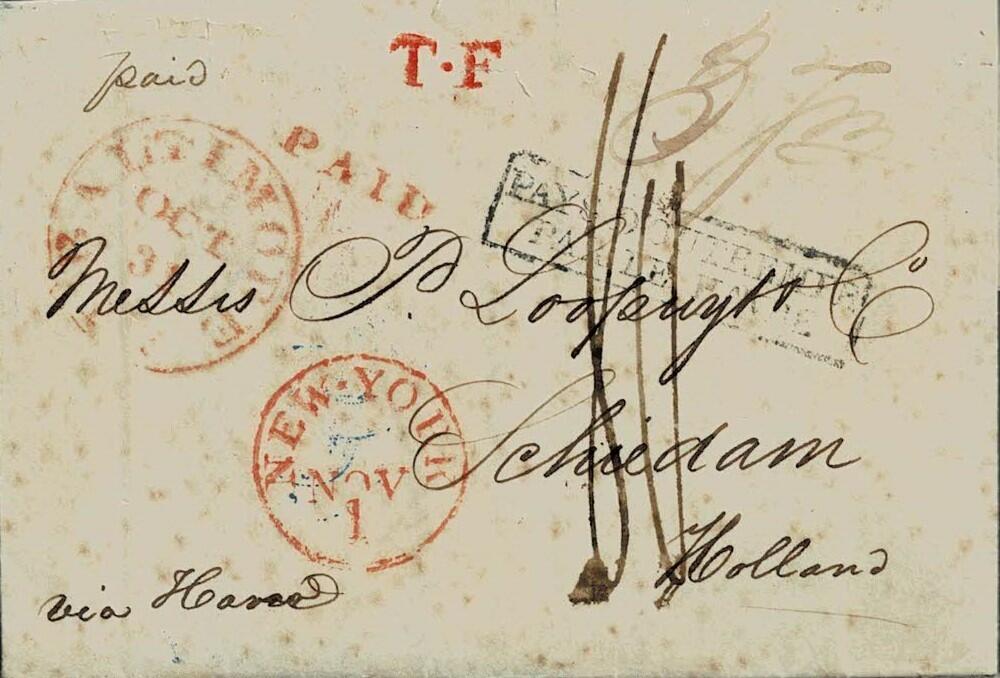 paid
T·F
PAID
BALTIMORE
OCT
31
PAYS D'OUTREMER
PAR LE HAVRE
Messrs P. Loopuyt & Co
NEW·YORK
NOV
1
Schiedam
Holland
via Havre